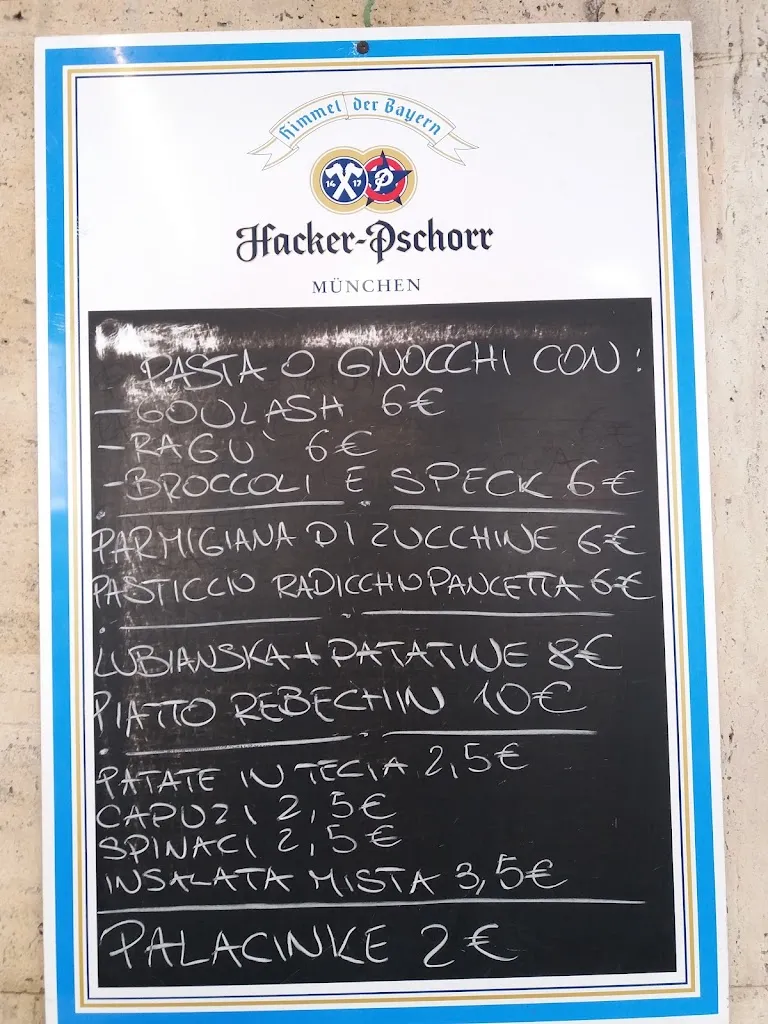 Himmel der Bayern
14 17 P
Hacker-Pschorr
MÜNCHEN
PASTA O GNOCCHI CON:
- GOULASH 6€
- RAGU' 6€
- BROCCOLI E SPECK 6€
PARMIGIANA DI ZUCCHINE 6€
PASTICCIO RADICCHIO PANCETTA 6€
LUBIANSKA + PATATINE 8€
PIATTO REBECHIN 10€
PATATE IN TECIA 2,5€
CAPUZI 2,5€
SPINACI 2,5€
INSALATA MISTA 3,5€
PALACINKE 2€